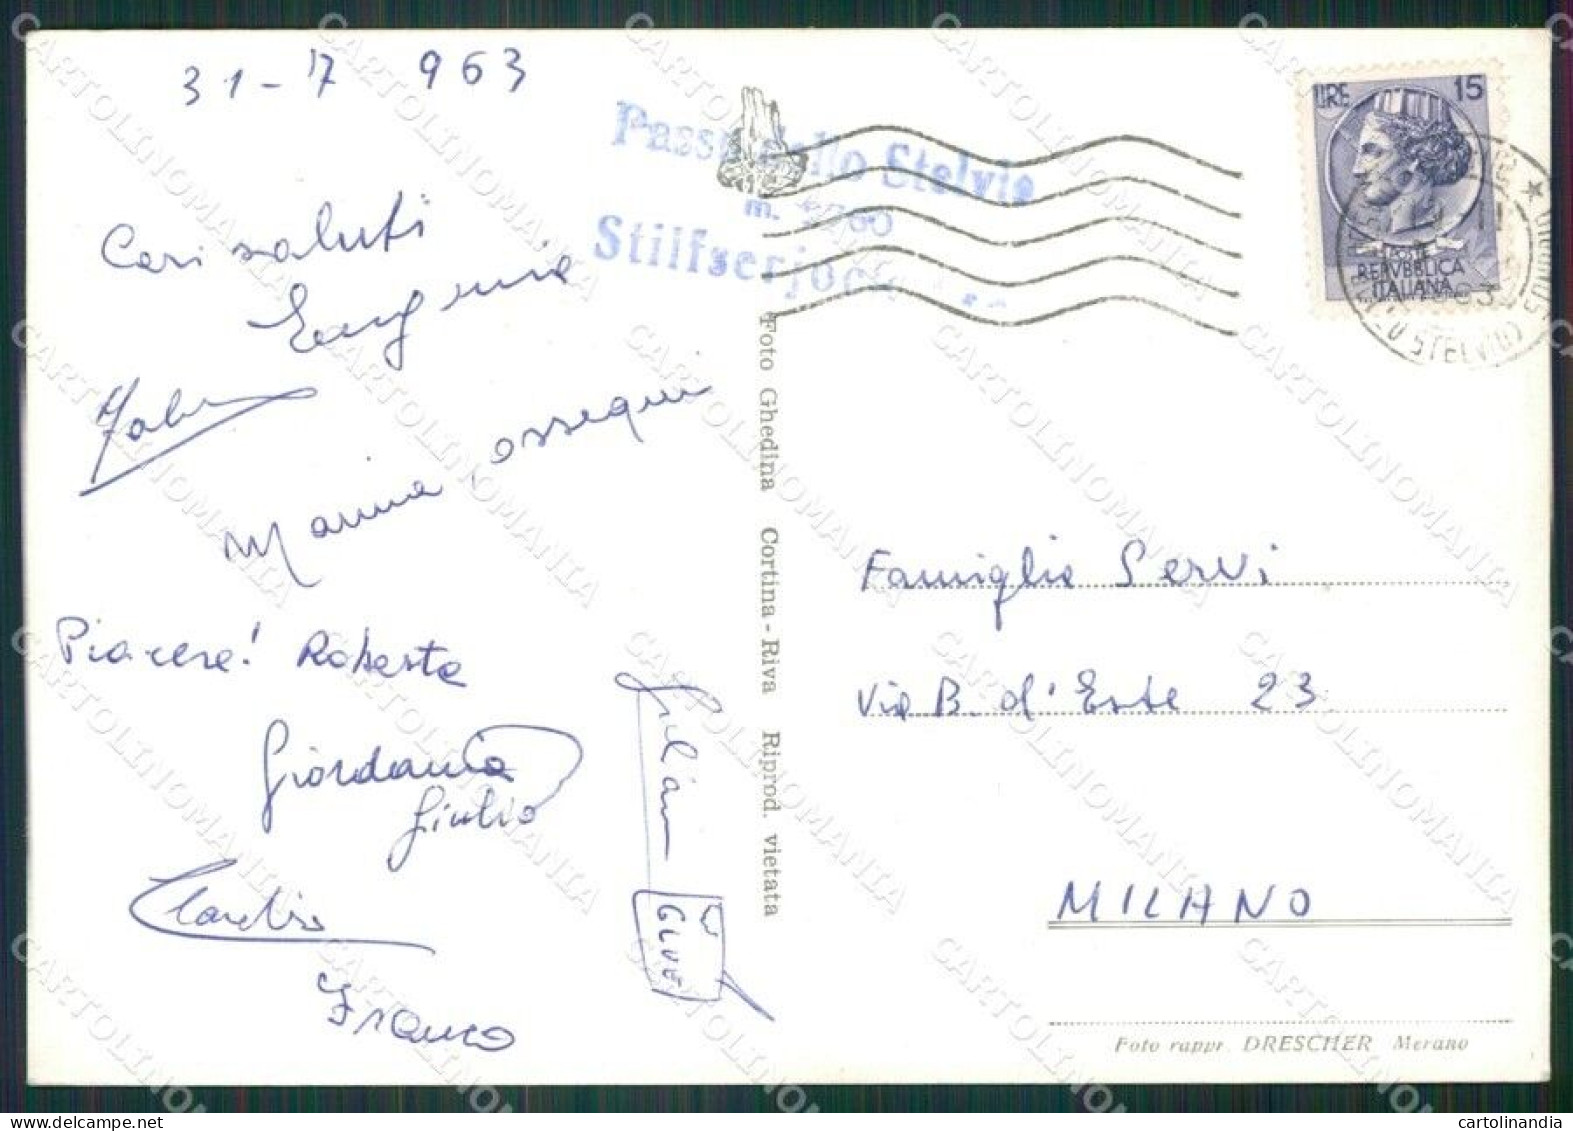 31-7 963
Passo dello Stelvio
m. 2760
Stilfserjoch
LIRE 15
POSTE
REPVBBLICA
ITALIANA
STELVIO
Cari saluti
Eugenia
Marina, ossequi
Piacere! Roberta
Giordania
Giulio
Claudio
Franco
Giuliano
Foto Ghedina Cortina - Riva Riprod. vietata
Famiglia Servi
Via B. d'Este 23
MILANO
Foto rappr. DRESCHER Merano
CARTOLINOMANIA
cartolinandia